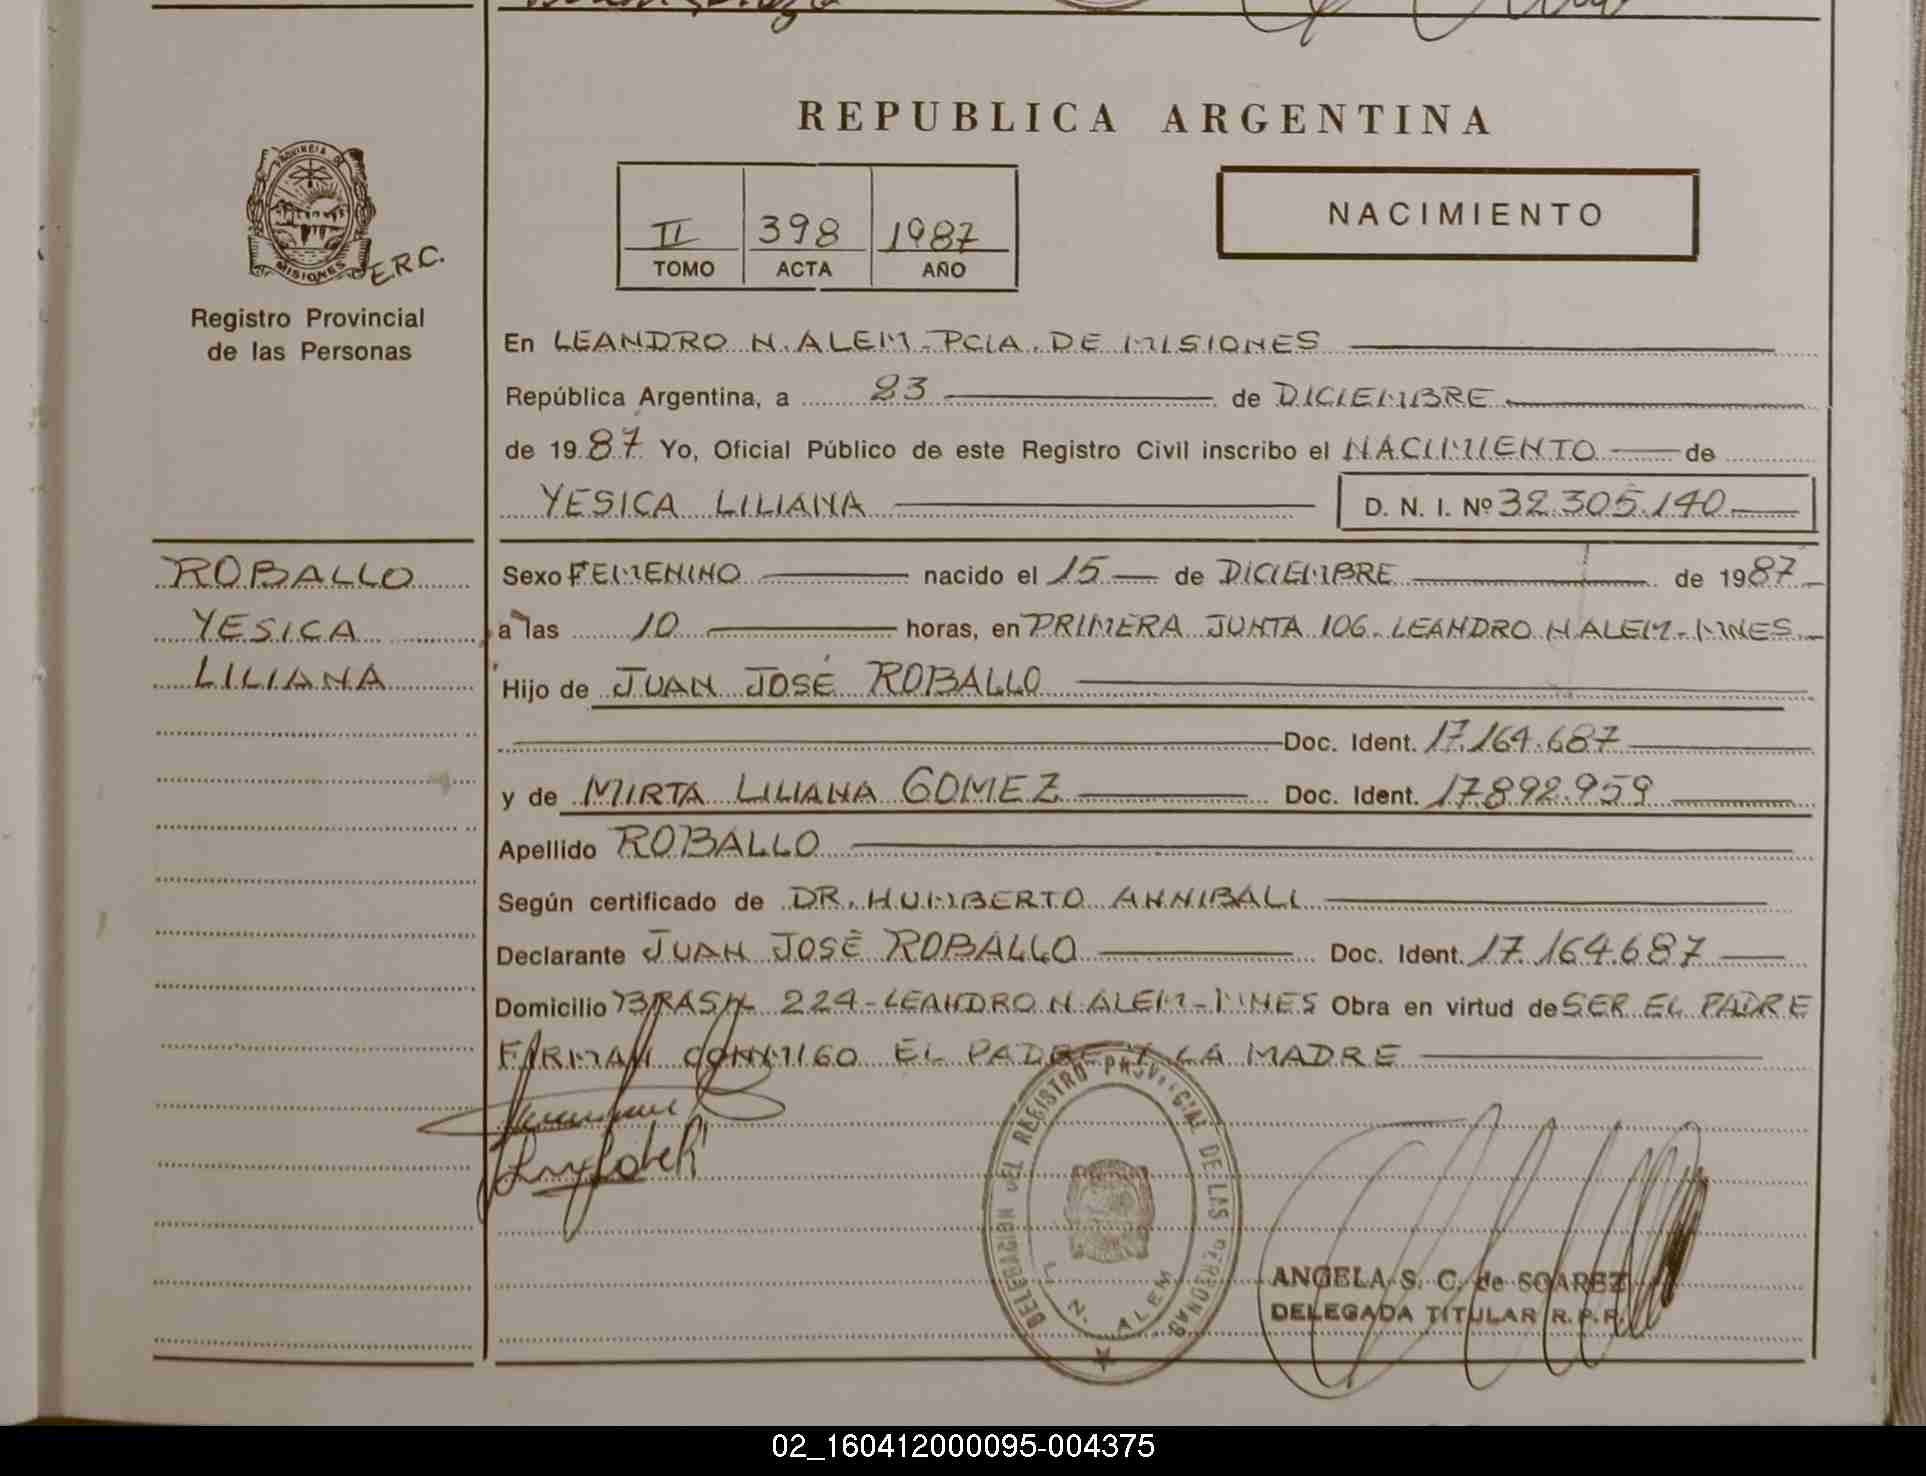 REPUBLICA ARGENTINA
PROVINCIA DE
MISIONES
E.R.C.
Registro Provincial
de las Personas
II 398 1987
TOMO ACTA AÑO
NACIMIENTO
En LEANDRO N. ALEM - PCIA. DE MISIONES
República Argentina, a 23 de DICIEMBRE
de 1987 Yo, Oficial Público de este Registro Civil inscribo el NACIMIENTO de
YESICA LILIANA D. N. I. Nº 32.305.140
ROBALLO
YESICA
LILIANA
Sexo FEMENINO nacido el 15 de DICIEMBRE de 1987
a las 10 horas, en PRIMERA JUNTA 106 - LEANDRO N ALEM - MNES
Hijo de JUAN JOSÉ ROBALLO
Doc. Ident. 17.164.687
y de MIRTA LILIANA GOMEZ Doc. Ident. 17892.959
Apellido ROBALLO
Según certificado de DR. HUMBERTO ANNIBALI
Declarante JUAN JOSÉ ROBALLO Doc. Ident. 17.164.687
Domicilio BRASIL 224 - LEANDRO N. ALEM - MNES Obra en virtud de SER EL PADRE
FIRMAN CONMIGO EL PADRE Y LA MADRE
DELEGACION DEL REGISTRO PROVINCIAL DE LAS PERSONAS
L. N. ALEM
ANGELA S. C. de SOAREZ
DELEGADA TITULAR R. P. P.
02_160412000095-004375